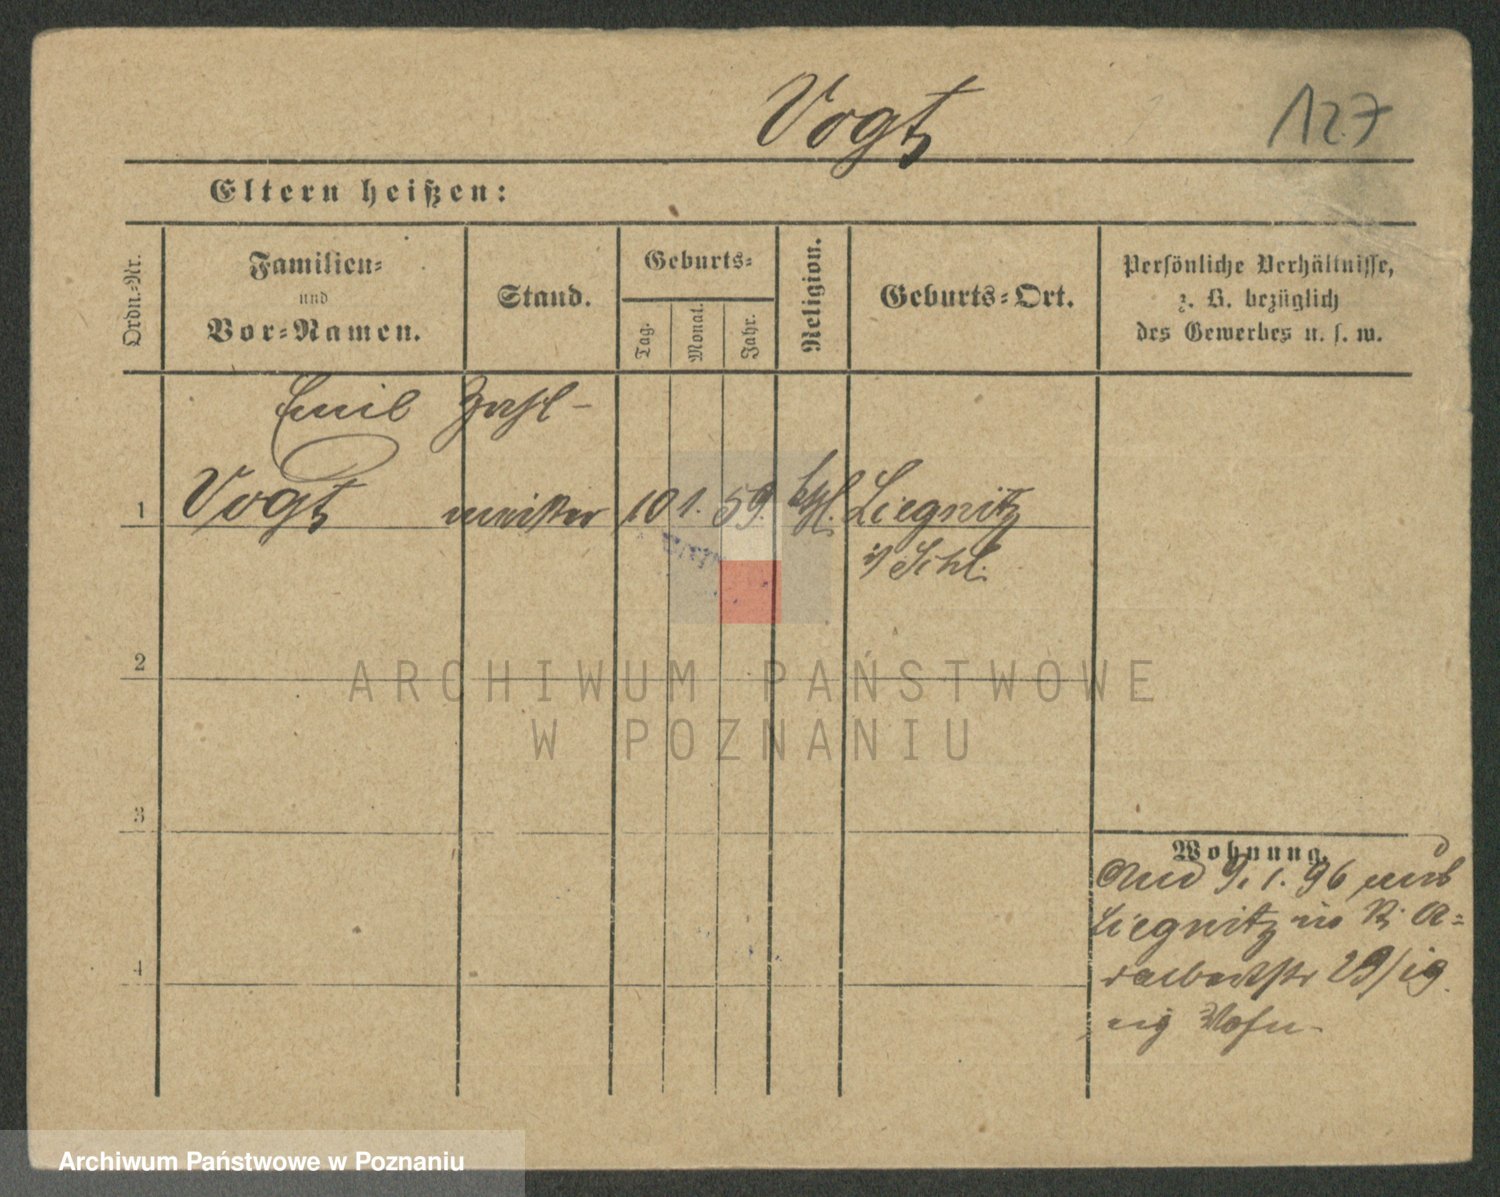 Vogt
127
Eltern heißen:
Ordn.-Nr.
Familien-
und
Vor-Namen.
Stand.
Geburts-
Tag.
Monat.
Jahr.
Religion.
Geburts-Ort.
Persönliche Verhältnisse,
z. B. bezüglich
des Gewerbes u. s. w.
Emil Zahl-
1 Vogt meister 10 1. 59. kth. Liegnitz
i/ Schl.
2
3
4
Wohnung.
9. 1. 96
Liegnitz
29/
ARCHIWUM PAŃSTWOWE
W POZNANIU
Archiwum Państwowe w Poznaniu